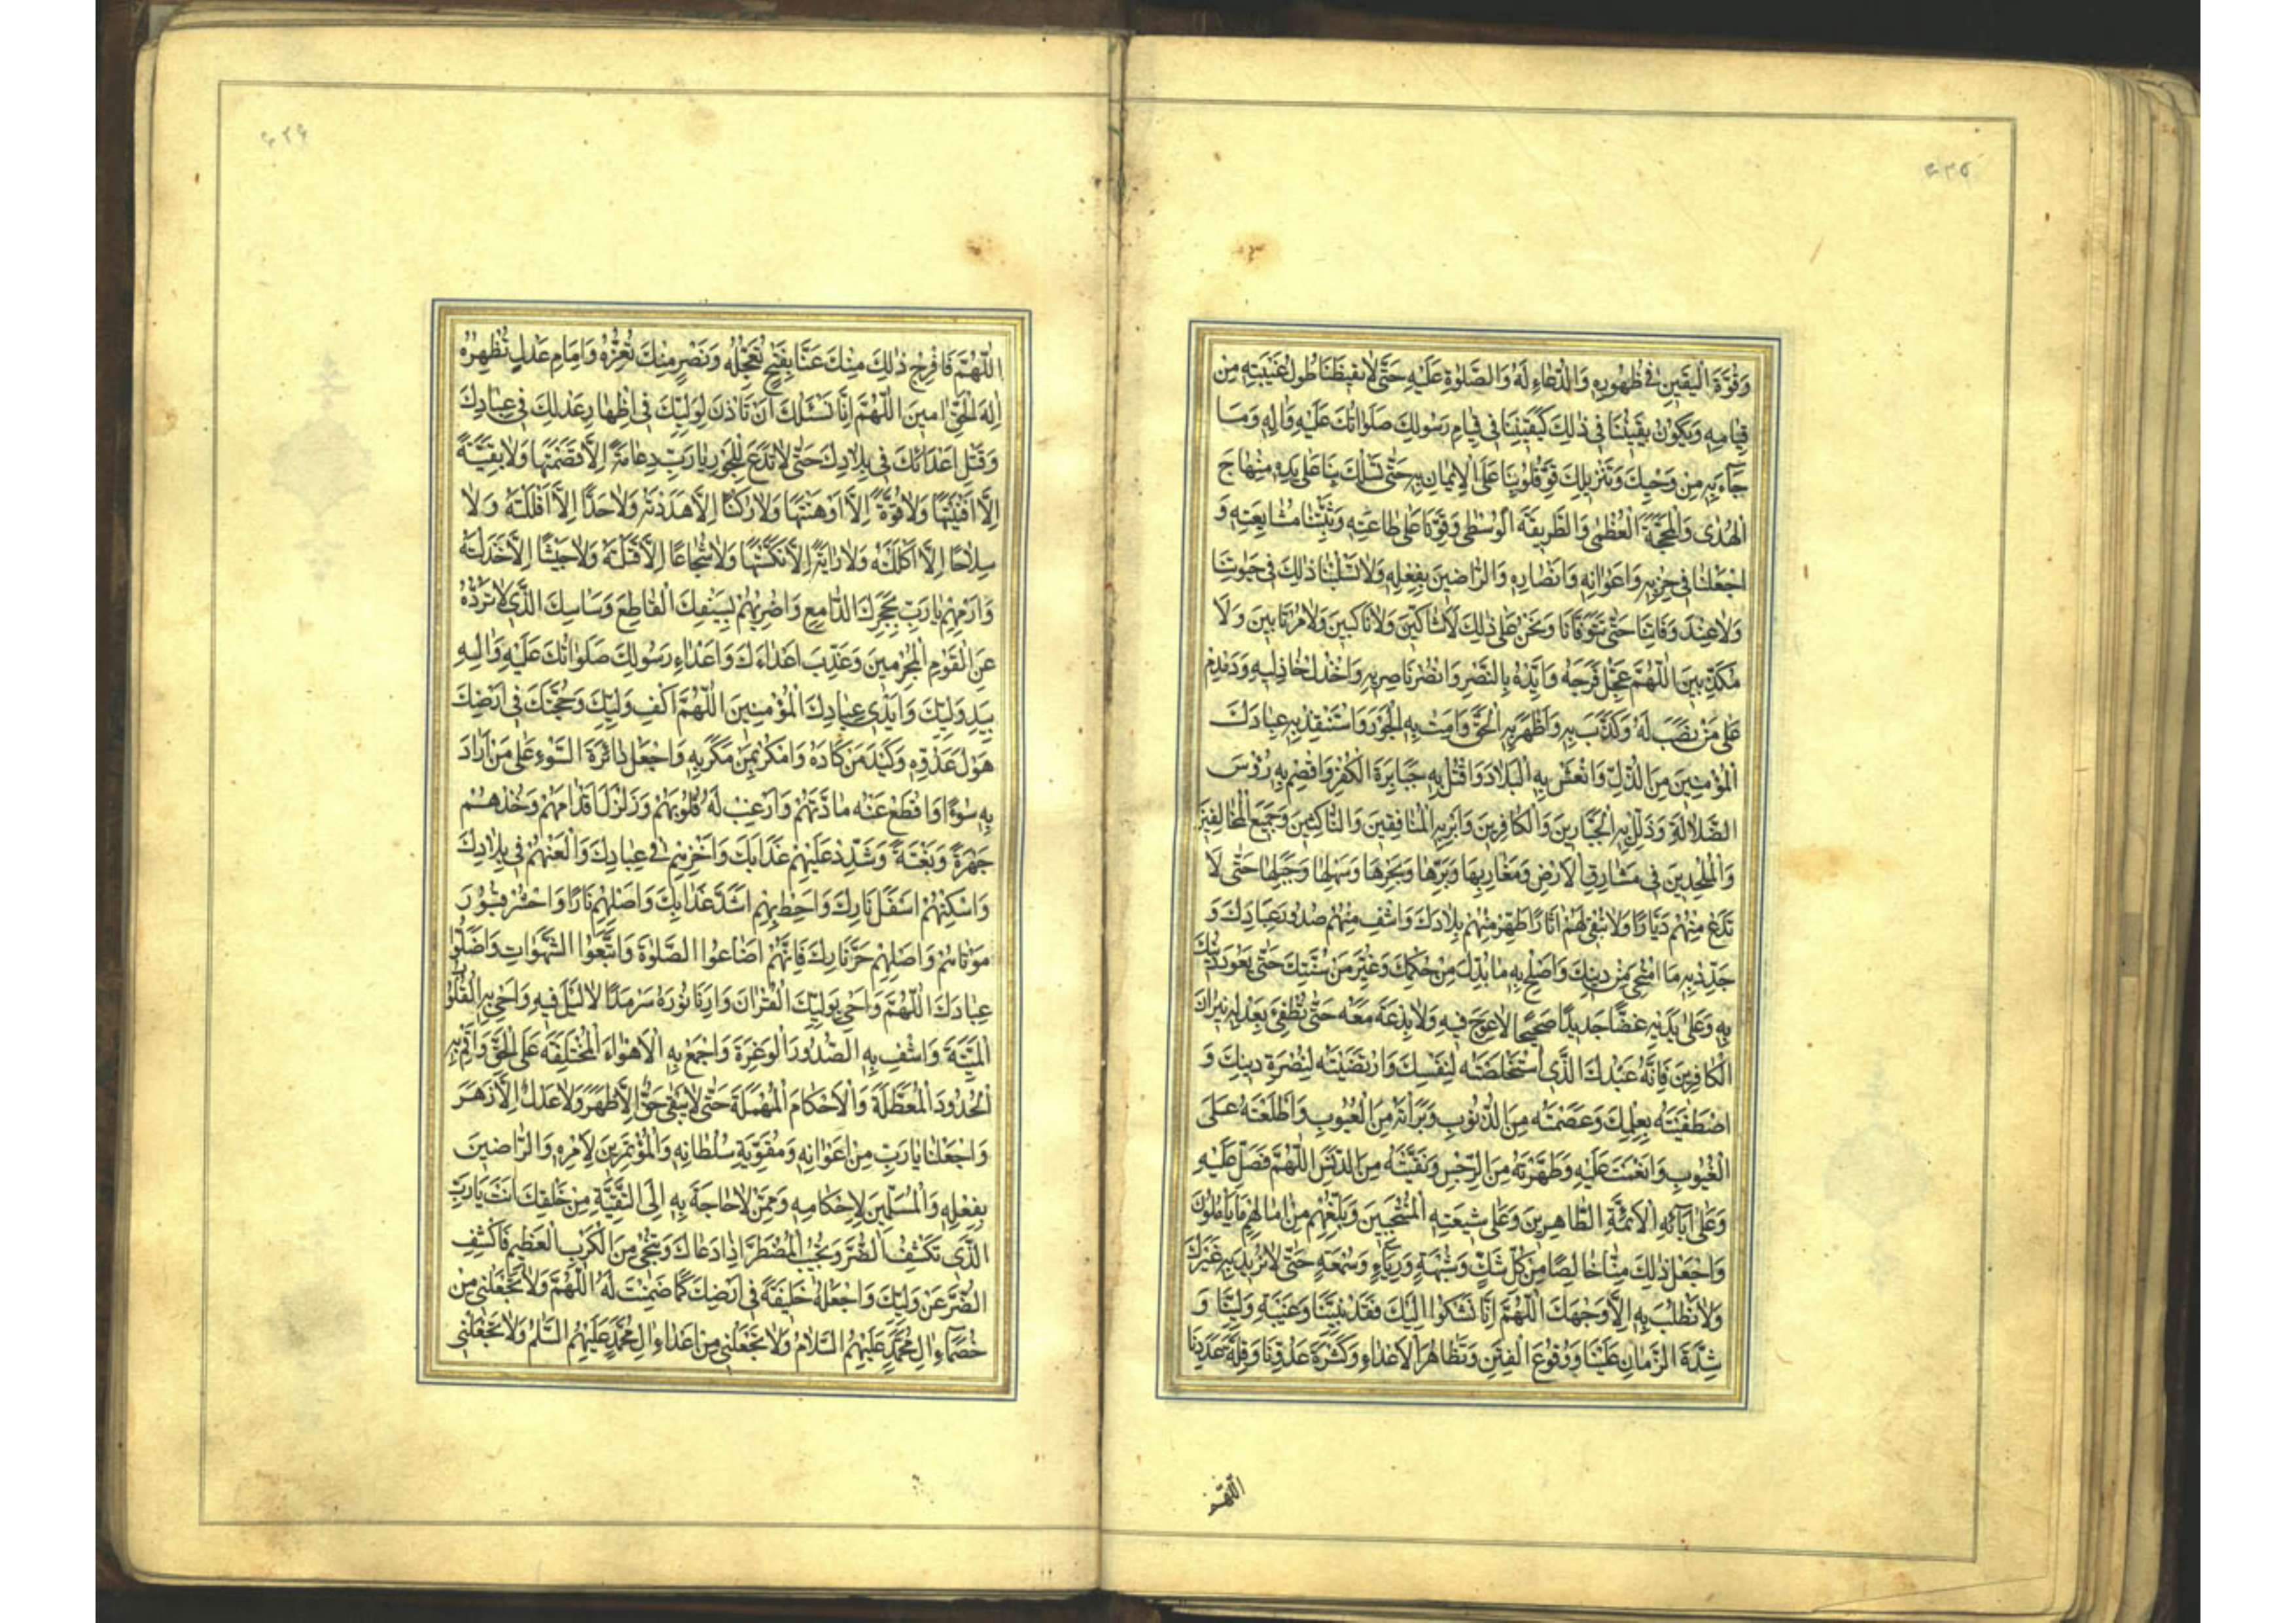 ۶۲۵
وَقُوَّةَ الْيَقينِ في ظُهُورِهِ وَالدُّعاءِ لَهُ وَالصَّلوةِ عَلَيْهِ حَتّى لايُقَنِّطَنا طُولُ غَيْبَتِهِ مِن
قِيامِهِ وَيَكُونَ يَقينُنا في ذلِكَ كَيَقينِنا في قِيامِ رَسُولِكَ صَلَواتُكَ عَلَيْهِ وَالِهِ وَمَا
جآءَ بِهِ مِن وَحْيِكَ وَتَنْزيلِكَ قَوِّ قُلُوبَنا عَلَى الإيمانِ بِهِ حَتّى تَسْلُكَ بِنا عَلى يَدِهِ مِنْهاجَ
الْهُدى وَالْمَحَجَّةَ الْعُظْمى وَالطَّريقَةَ الْوُسْطى وَقَوِّنا عَلى طاعَتِهِ وَثَبِّتْنا مُشايَعَتِهِ وَ
اجْعَلْنا في حِزْبِهِ وَاَعْوانِهِ وَاَنْصارِهِ وَالرّاضينَ بِفِعْلِهِ وَلاتَسْلُبْنا ذلِكَ في حَيوتِنا
وَلاعِنْدَ وَفاتِنا حَتّى تَتَوَفّانا وَنَحْنُ عَلى ذلِكَ لاشاكّينَ وَلاناكِبينَ وَلامُرْتابينَ وَلَا
مُكَذِّبينَ اللّهُمَّ عَجِّلْ فَرَجَهُ وَاَيِّدْهُ بِالنَّصْرِ وَانْصُرْ ناصِريهِ وَاخْذُلْ خاذِليهِ وَدَمْدِمْ
عَلى مَنْ نَصَبَ لَهُ وَكَذَّبَ بِهِ وَاَظْهِرْ بِهِ الْحَقَّ وَاَمِتْ بِهِ الْجَوْرَ وَاسْتَنْقِذْ بِهِ عِبادَكَ
الْمُؤْمِنينَ مِنَ الذُّلِّ وَانْعَشْ بِهِ الْبِلادَ وَاقْتُلْ بِهِ جَبابِرَةَ الْكُفْرِ وَاقْصِمْ بِهِ رُؤُسَ
الضَّلالَةِ وَذَلِّلْ بِهِ الْجَبّارينَ وَالْكافِرينَ وَاَبِرْ بِهِ الْمُنافِقينَ وَالنّاكِثينَ وَجَميعَ الْمُخالِفينَ
وَالْمُلْحِدينَ في مَشارِقِ الْاَرْضِ وَمَغارِبِها وَبَرِّها وَبَحْرِها وَسَهْلِها وَجَبَلِها حَتّى لَا
تَدَعَ مِنْهُمْ دَيّارًا وَلاتُبْقِيَ لَهُمْ اثارًا طَهِّرْ مِنْهُمْ بِلادَكَ وَاشْفِ مِنْهُمْ صُدُورَ عِبادِكَ وَ
جَدِّدْ بِهِ مَا امْتَحى مِنْ دينِكَ وَاَصْلِحْ بِهِ ما بُدِّلَ مِنْ حُكْمِكَ وَغُيِّرَ مِنْ سُنَّتِكَ حَتّى يَعُودَ دينُكَ
بِهِ وَعَلى يَدَيْهِ غَضًّا جَديدًا صَحيحًا لاعِوَجَ فيهِ وَلابِدْعَةَ مَعَهُ حَتّى تُطْفِئَ بِعَدْلِهِ نيرانَ
الْكافِرينَ فَاِنَّهُ عَبْدُكَ الَّذي اسْتَخْلَصْتَهُ لِنَفْسِكَ وَارْتَضَيْتَهُ لِنُصْرَةِ دينِكَ وَ
اصْطَفَيْتَهُ بِعِلْمِكَ وَعَصَمْتَهُ مِنَ الذُّنُوبِ وَبَرَّاْتَهُ مِنَ الْعُيُوبِ وَاَطْلَعْتَهُ عَلَى
الْغُيُوبِ وَاَنْعَمْتَ عَلَيْهِ وَطَهَّرْتَهُ مِنَ الرِّجْسِ وَنَقَّيْتَهُ مِنَ الدَّنَسِ اللّهُمَّ فَصَلِّ عَلَيْهِ
وَعَلى ابآئِهِ الْاَئِمَّةِ الطّاهِرينَ وَعَلى شيعَتِهِ الْمُنْتَجَبينَ وَبَلِّغْهُمْ مِنْ امالِهِمْ مايَاْمُلُونَ
وَاجْعَلْ ذلِكَ مِنّا خالِصًا مِنْ كُلِّ شَكٍّ وَشُبْهَةٍ وَرِياءٍ وَسُمْعَةٍ حَتّى لانُريدَ بِهِ غَيْرَكَ
وَلانَطْلُبَ بِهِ اِلّا وَجْهَكَ اللّهُمَّ اِنّا نَشْكُوا اِلَيْكَ فَقْدَ نَبِيِّنا وَغَيْبَةَ وَلِيِّنا وَ
شِدَّةَ الزَّمانِ عَلَيْنا وَوُقُوعَ الْفِتَنِ وَتَظاهُرَ الْاَعْداءِ وَكَثْرَةَ عَدُوِّنا وَقِلَّةَ عَدَدِنا
اللّهُمَّ
۶۲۶
اللّهُمَّ فَافْرِجْ ذلِكَ مِنْكَ عَنّا بِفَتْحٍ تُعَجِّلُهُ وَنَصْرٍ مِنْكَ تُعِزُّهُ وَاِمامِ عَدْلٍ تُظْهِرُهُ
اِلهَ الْحَقِّ امينَ اللّهُمَّ اِنّا نَسْئَلُكَ اَنْ تَاْذَنَ لِوَلِيِّكَ في اِظْهارِ عَدْلِكَ في عِبادِكَ
وَقَتْلِ اَعْدائِكَ في بِلادِكَ حَتّى لاتَدَعَ لِلْجَوْرِ يارَبِّ دِعامَةً اِلّا قَصَمْتَها وَلابَقِيَّةً
اِلّا اَفْنَيْتَها وَلاقُوَّةً اِلّا اَوْهَنْتَها وَلارُكْنًا اِلّا هَدَدْتَهُ وَلاحَدًّا اِلّا اَفْلَلْتَهُ وَلَا
سِلاحًا اِلّا اَكْلَلْتَهُ وَلارايَةً اِلّا نَكَّسْتَها وَلاشُجاعًا اِلّا قَتَلْتَهُ وَلاجَيْشًا اِلّا خَذَلْتَهُ
وَارْمِهِمْ يارَبِّ بِحَجَرِكَ الدّامِغِ وَاضْرِبْهُمْ بِسَيْفِكَ الْقاطِعِ وَبَاْسِكَ الَّذي لاتَرُدُّهُ
عَنِ الْقَوْمِ الْمُجْرِمينَ وَعَذِّبْ اَعْداءَكَ وَاَعْداءَ رَسُولِكَ صَلَواتُكَ عَلَيْهِ وَالِهِ
بِيَدِ وَلِيِّكَ وَاَيْدي عِبادِكَ الْمُؤْمِنينَ اللّهُمَّ اكْفِ وَلِيَّكَ وَحُجَّتَكَ في اَرْضِكَ
هَوْلَ عَدُوِّهِ وَكَيْدَ مَنْ كادَهُ وَامْكُرْ بِمَنْ مَكَرَ بِهِ وَاجْعَلْ دائِرَةَ السَّوْءِ عَلى مَنْ اَرادَ
بِهِ سُوءًا وَاقْطَعْ عَنْهُ مادَّتَهُمْ وَاَرْعِبْ لَهُ قُلُوبَهُمْ وَزَلْزِلْ اَقْدامَهُمْ وَخُذْهُمْ
جَهْرَةً وَبَغْتَةً وَشَدِّدْ عَلَيْهِمْ عَذابَكَ وَاَخْزِهِمْ في عِبادِكَ وَالْعَنْهُمْ في بِلادِكَ
وَاَسْكِنْهُمْ اَسْفَلَ نارِكَ وَاَحِطْ بِهِمْ اَشَدَّ عَذابِكَ وَاَصْلِهِمْ نارًا وَاحْشُ قُبُورَ
مَوْتاهُمْ وَاَصْلِهِمْ حَرَّ نارِكَ فَاِنَّهُمْ اَضاعُوا الصَّلوةَ وَاتَّبَعُوا الشَّهَواتِ وَاَضَلُّوا
عِبادَكَ اللّهُمَّ وَاَحْيِ بِوَلِيِّكَ الْقُرْانَ وَاَرِنا نُورَهُ سَرْمَدًا لالَيْلَ فيهِ وَاَحْيِ بِهِ الْقُلُوبَ
الْمَيِّتَةَ وَاشْفِ بِهِ الصُّدُورَ الْوَغِرَةَ وَاجْمَعْ بِهِ الْاَهْواءَ الْمُخْتَلِفَةَ عَلَى الْحَقِّ وَاَقِمْ بِهِ
الْحُدُودَ الْمُعَطَّلَةَ وَالْاَحْكامَ الْمُهْمَلَةَ حَتّى لايَبْقى حَقٌّ اِلّا ظَهَرَ وَلاعَدْلٌ اِلّا زَهَرَ
وَاجْعَلْنا يارَبِّ مِنْ اَعْوانِهِ وَمُقَوِّيَةِ سُلْطانِهِ وَالْمُؤْتَمِرينَ لِاَمْرِهِ وَالرّاضينَ
بِفِعْلِهِ وَالْمُسَلِّمينَ لِاَحْكامِهِ وَمِمَّنْ لاحاجَةَ بِهِ اِلَى التَّقِيَّةِ مِنْ خَلْقِكَ اَنْتَ يارَبِّ
الَّذي تَكْشِفُ الضُّرَّ وَتُجيبُ الْمُضْطَرَّ اِذا دَعاكَ وَتُنْجي مِنَ الْكَرْبِ الْعَظيمِ فَاكْشِفِ
الضُّرَّ عَنْ وَلِيِّكَ وَاجْعَلْهُ خَليفَةً في اَرْضِكَ كَما ضَمِنْتَ لَهُ اللّهُمَّ وَلاتَجْعَلْني مِنْ
خُصَمآءِ الِ مُحَمَّدٍ عَلَيْهِمُ السَّلامُ وَلاتَجْعَلْني مِنْ اَعْداءِ الِ مُحَمَّدٍ عَلَيْهِمُ السَّلمُ وَلاتَجْعَلْني